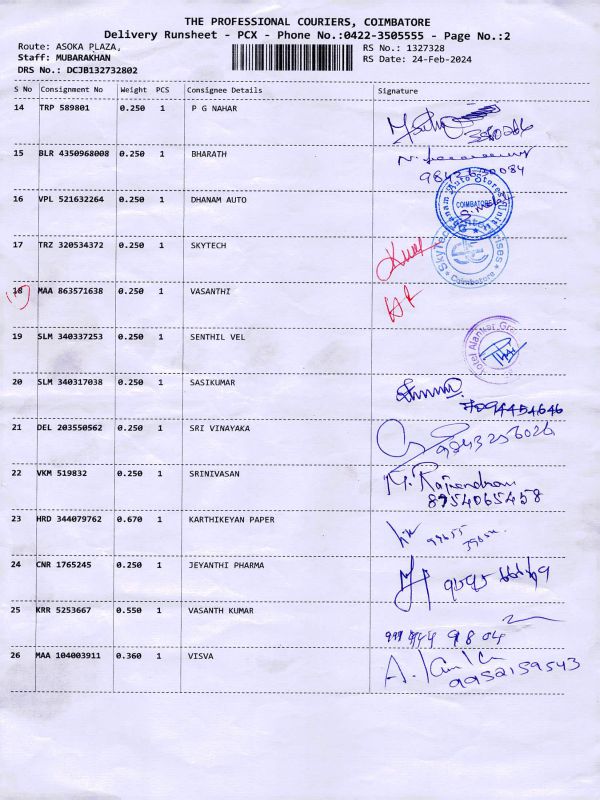 THE PROFESSIONAL COURIERS, COIMBATORE
Delivery Runsheet - PCX - Phone No.:0422-3505555 - Page No.:2
Route: ASOKA PLAZA, RS No.: 1327328
Staff: MUBARAKHAN RS Date: 24-Feb-2024
DRS No.: DCJB132732802
S No Consignment No Weight PCS Consignee Details Signature
14 TRP 589801 0.250 1 P G NAHAR
15 BLR 4350968008 0.250 1 BHARATH
16 VPL 521632264 0.250 1 DHANAM AUTO
Dhanam Auto Stores COIMBATORE
17 TRZ 320534372 0.250 1 SKYTECH
Coimbatore
18 MAA 863571638 0.250 1 VASANTHI
19 SLM 340337253 0.250 1 SENTHIL VEL
20 SLM 340317038 0.250 1 SASIKUMAR
7094454646
21 DEL 203550562 0.250 1 SRI VINAYAKA
9843256026
22 VKM 519832 0.250 1 SRINIVASAN
M. Rajendran
8954065458
23 HRD 344079762 0.670 1 KARTHIKEYAN PAPER
24 CNR 1765245 0.250 1 JEYANTHI PHARMA
25 KRR 5253667 0.550 1 VASANTH KUMAR
26 MAA 104003911 0.360 1 VISVA
9952159543